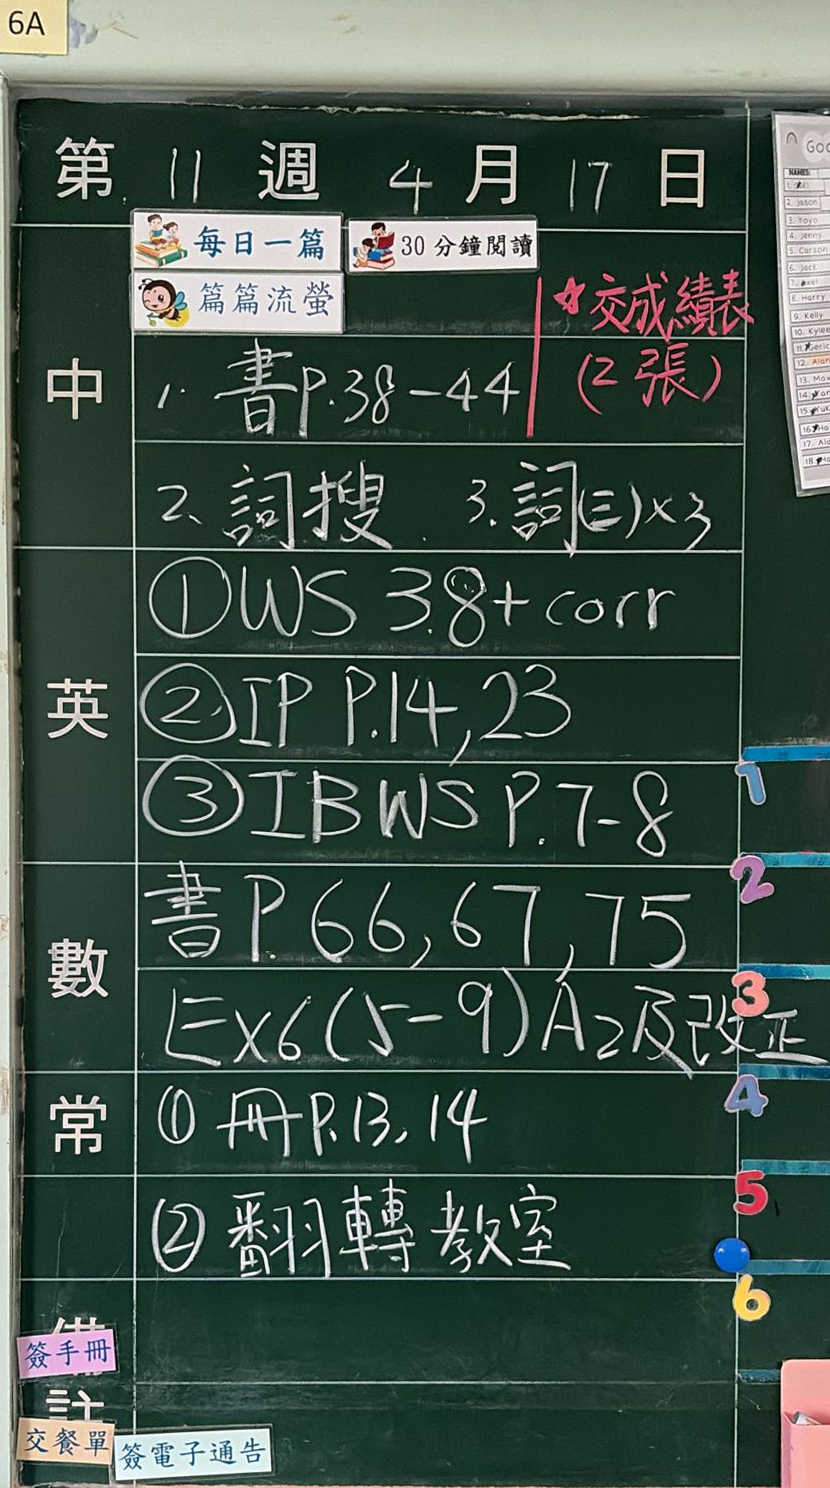 6A
第 11 週 4 月 17 日
每日一篇 30分鐘閱讀
篇篇流螢
*交成績表
(2張)
中
1. 書P.38-44
2. 詞搜 3. 詞(三)×3
英
①WS 3.8+corr
②IP P.14,23
③IB WS P.7-8
數
書P.66,67,75
Ex6(5-9)A2及改正
常
①冊P.13,14
②翻轉教室
備註
簽手冊
交餐單 簽電子通告
Goo
NAMES:
2. Jason
3. Yoyo
4. Jenny
5. Carson
6. Jack
8. Harry
9. Kelly
10. Kylee
12. Alan
13. Max
1
2
3
4
5
6